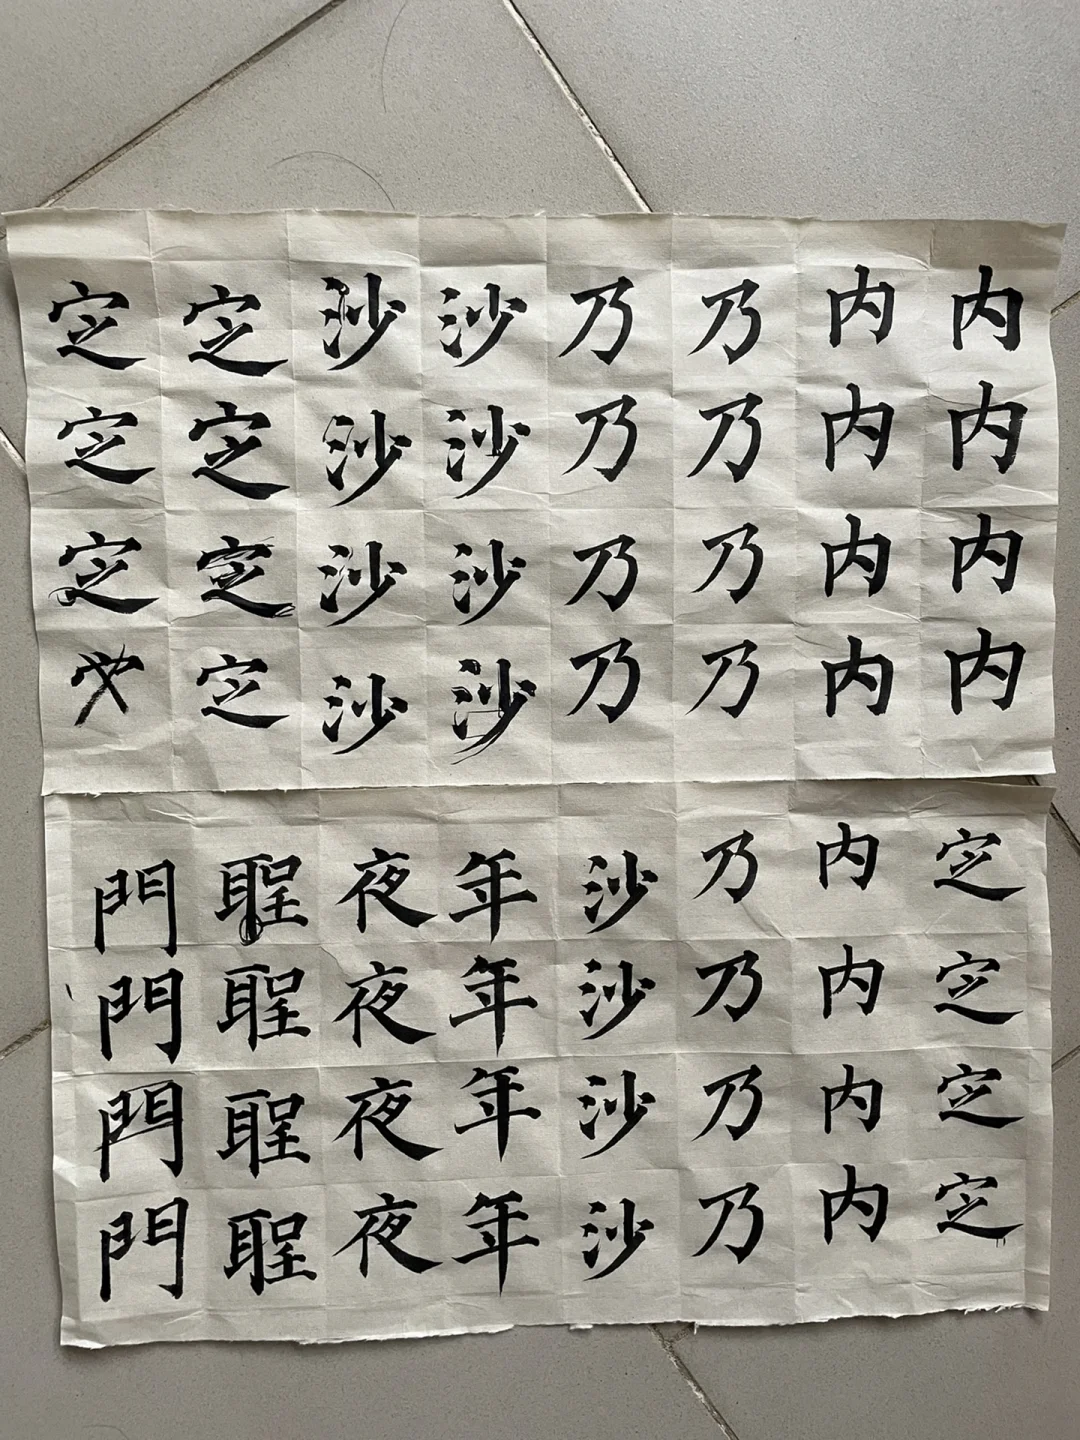 内内内内
内内内内
乃乃乃乃
乃乃乃乃
沙沙沙沙
沙沙沙沙
定定定定
定定定
定定定定
内内内内
乃乃乃乃
沙沙沙沙
年年年年
夜夜夜夜
聖聖聖聖
門門門門